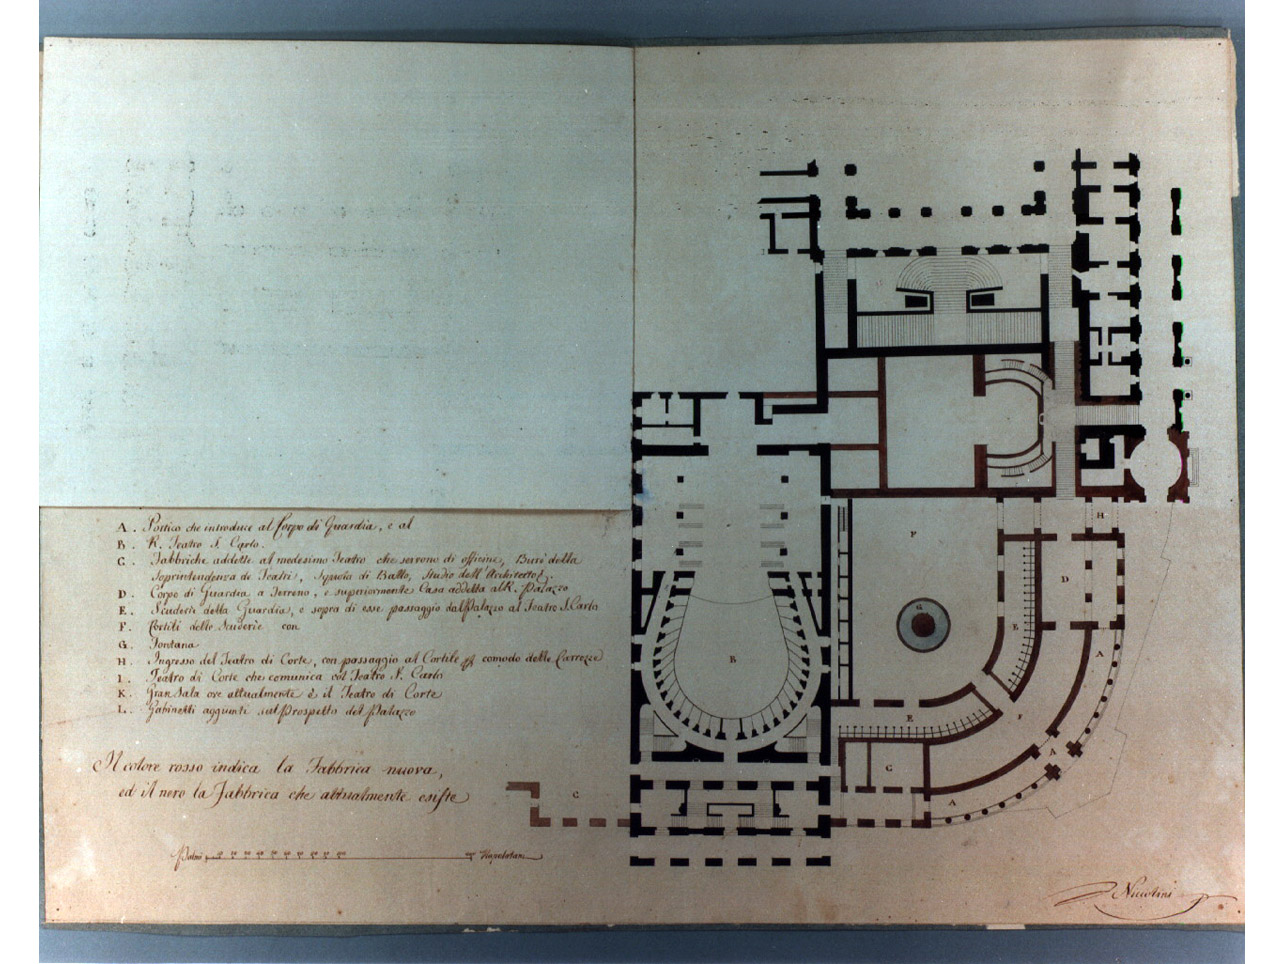 A. Portico che introduce al Corpo di Guardia, e al
B. R. Teatro S. Carlo.
C. Fabbriche addette al medesimo Teatro che servono di officine, Burò della
Soprintendenza de Teatri, Scuola di Ballo, Studio dell'Architetto &.
D. Corpo di Guardia a Terreno, e superiormente Casa addetta al R. Palazzo
E. Scuderie della Guardia, e sopra di esse passaggio dal Palazzo al Teatro S. Carlo
F. Cortili delle Scuderie con
G. Fontana
H. Ingresso del Teatro di Corte, con passaggio al Cortile pel comodo delle Carrozze
I. Teatro di Corte che comunica col Teatro S. Carlo
K. Gran Sala ove attualmente è il Teatro di Corte
L. Gabinetti aggiunti sul Prospetto del Palazzo
Il colore rosso indica la Fabbrica nuova,
ed il nero la Fabbrica che attualmente esiste
Palmi
Napoletani
F
H
D
G
E
A
B
E
A
C
C
A
Niccolini